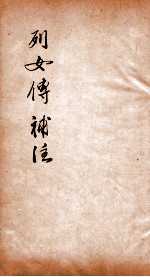 列女傳補注